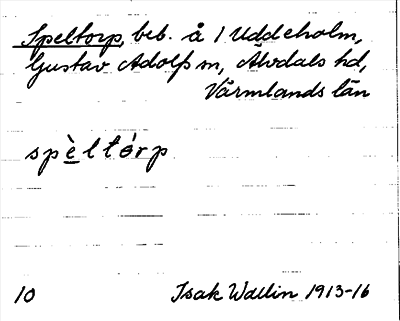 Speltorp, beb. å 1 Uddeholm,
Gustav Adolfs sn, Älvdals hd,
Värmlands län
spèltórp
10 Isak Wallin 1913-16